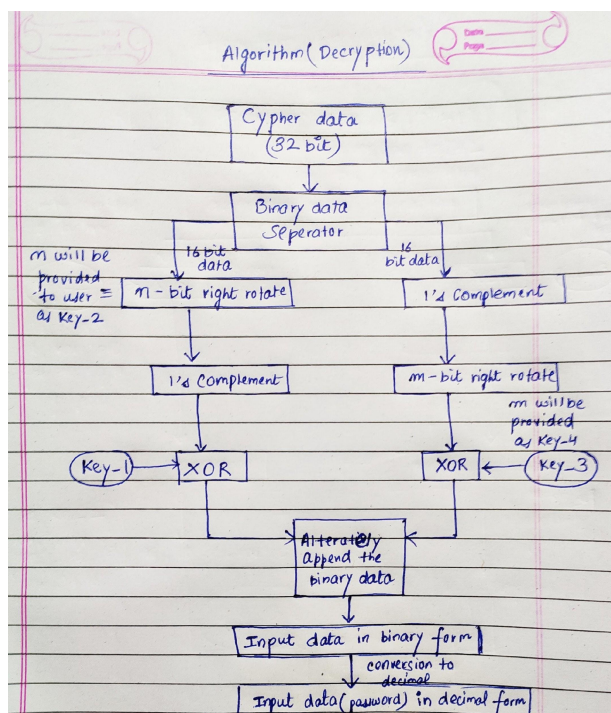 Date
Page
Algorithm (Decryption)
Cypher data
(32 bit)
Binary data
Seperator
16 bit
data
16
bit data
n will be
provided
to user =
as Key-2
n-bit right rotate
1's Complement
1's Complement
m-bit right rotate
m will be
provided
as Key-4
Key-1
XOR
XOR
Key-3
append the
binary data
Input data in binary form
conversion to
decimal
Input data (password) in decimal form